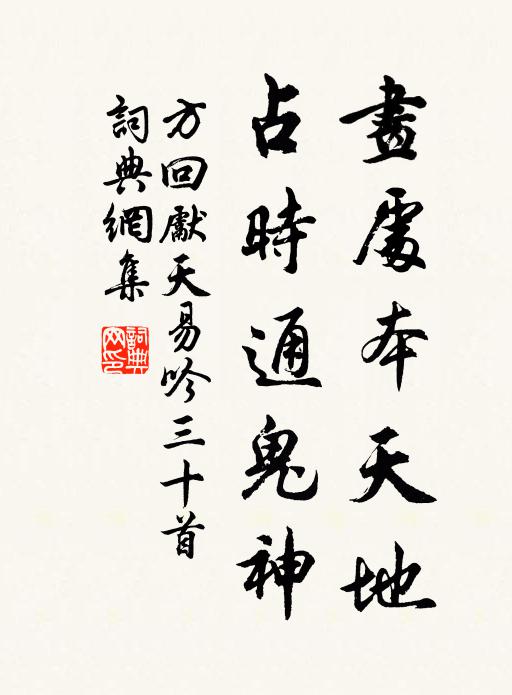 畫處本天地
占時通鬼神
方回獻天易吟三十首
詞典網集
詞典網印